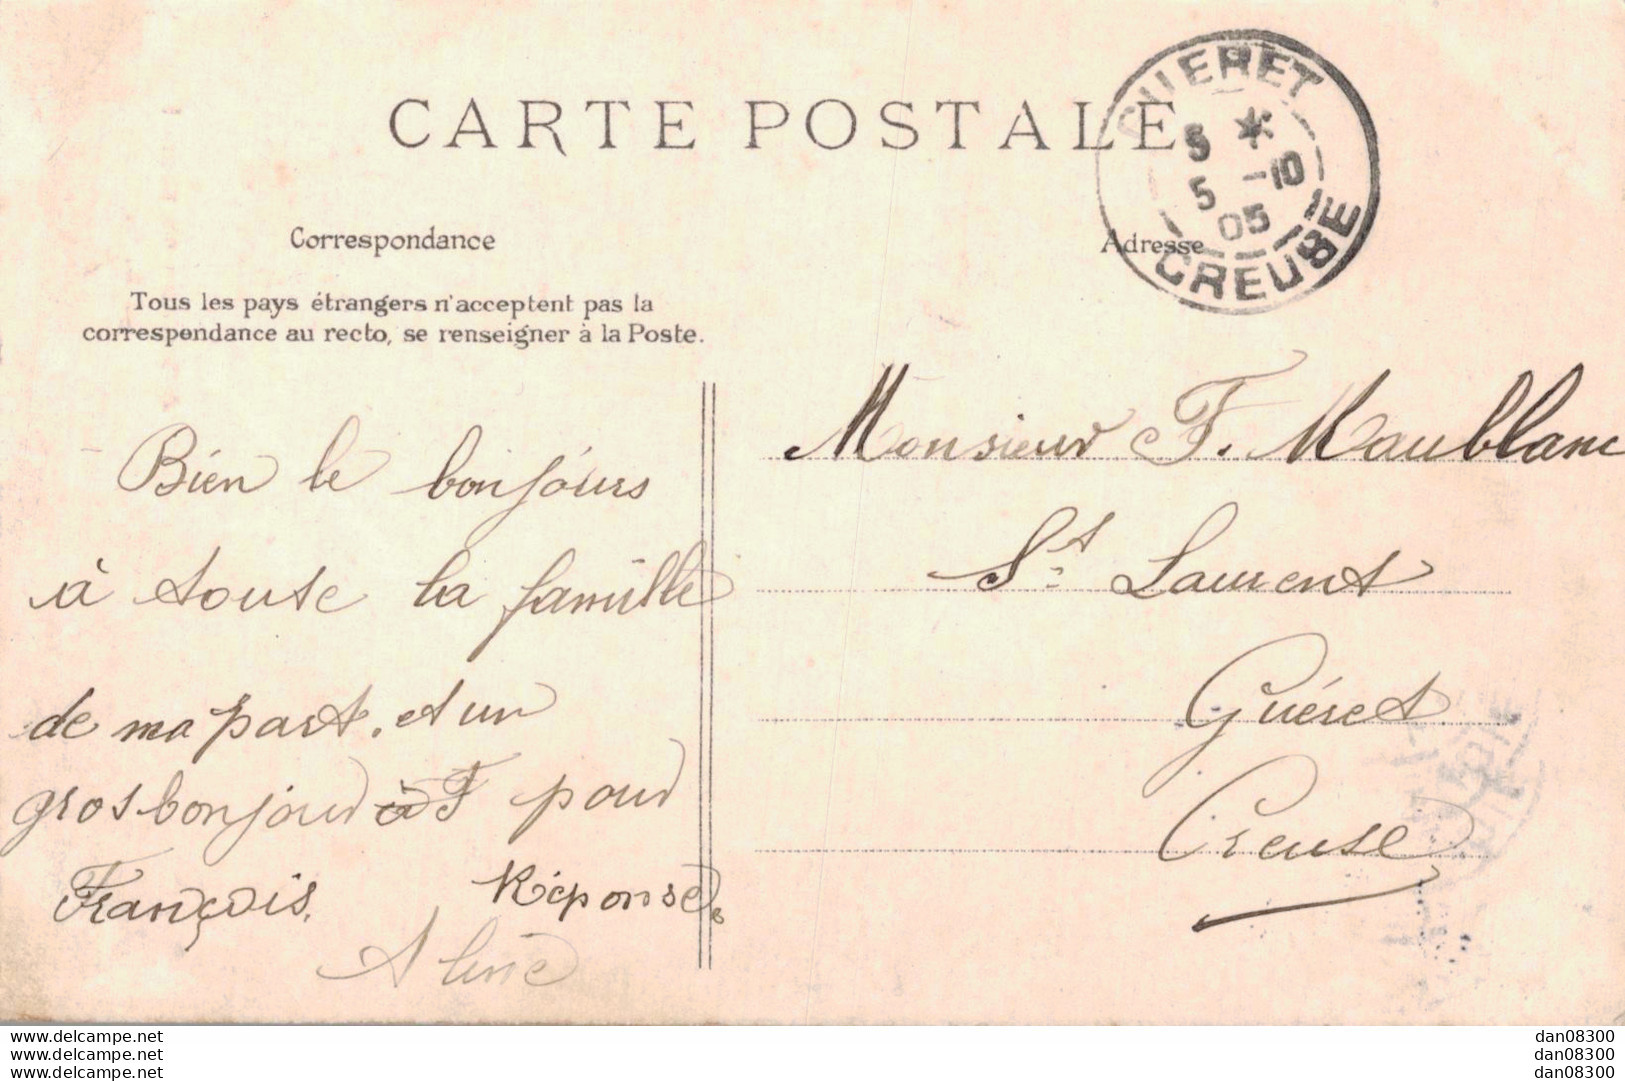 CARTE POSTALE
GUERET
5 *
5 -10
05
CREUSE
Correspondance
Adresse
Tous les pays étrangers n'acceptent pas la
correspondance au recto, se renseigner à la Poste.
Bien le bonjours
à toute la famille
de ma part. et un
gros bonjour à F pour
François. Réponse.
Aline
Monsieur F. Maublanc
St. Laurent
Guéret
Creuse
www.delcampe.net
www.delcampe.net
www.delcampe.net
dan08300
dan08300
dan08300